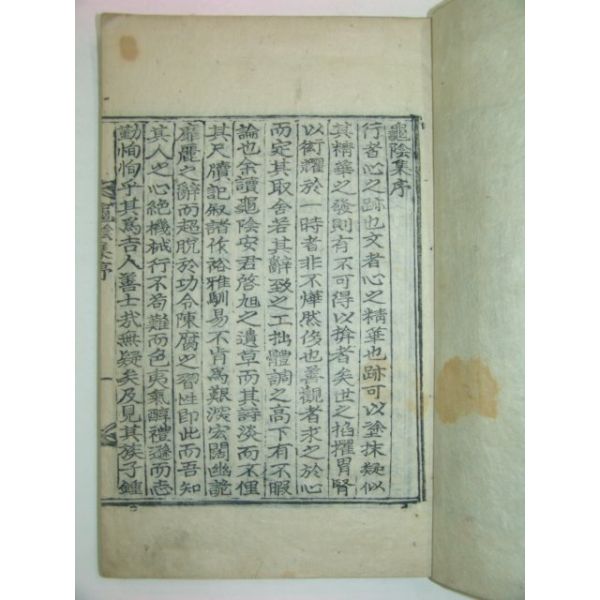 龜陰集序
行者心之跡也文者心之精華也跡可以塗抹疑似
其精華之發則有不可得以揜者矣世之掐擢胃腎
以衒耀於一時者非不燁然侈也善觀者求之於心
而定其取舍若其辭致之工拙體調之高下有不暇
論也余讀龜陰安君啓旭之遺草而其詩淡而不俚
其尺牘記叙諸作裕雅馴易不肯爲艱澁宏闊幽詭
靡麗之辭而超脫於功令陳腐之習性即此而吾知
其人之心絶機械行不苟難而色夷氣醇禮遜而志
勤恂恂乎其爲吉人善士哉無疑矣及見其族子鍾
龜陰集序
一